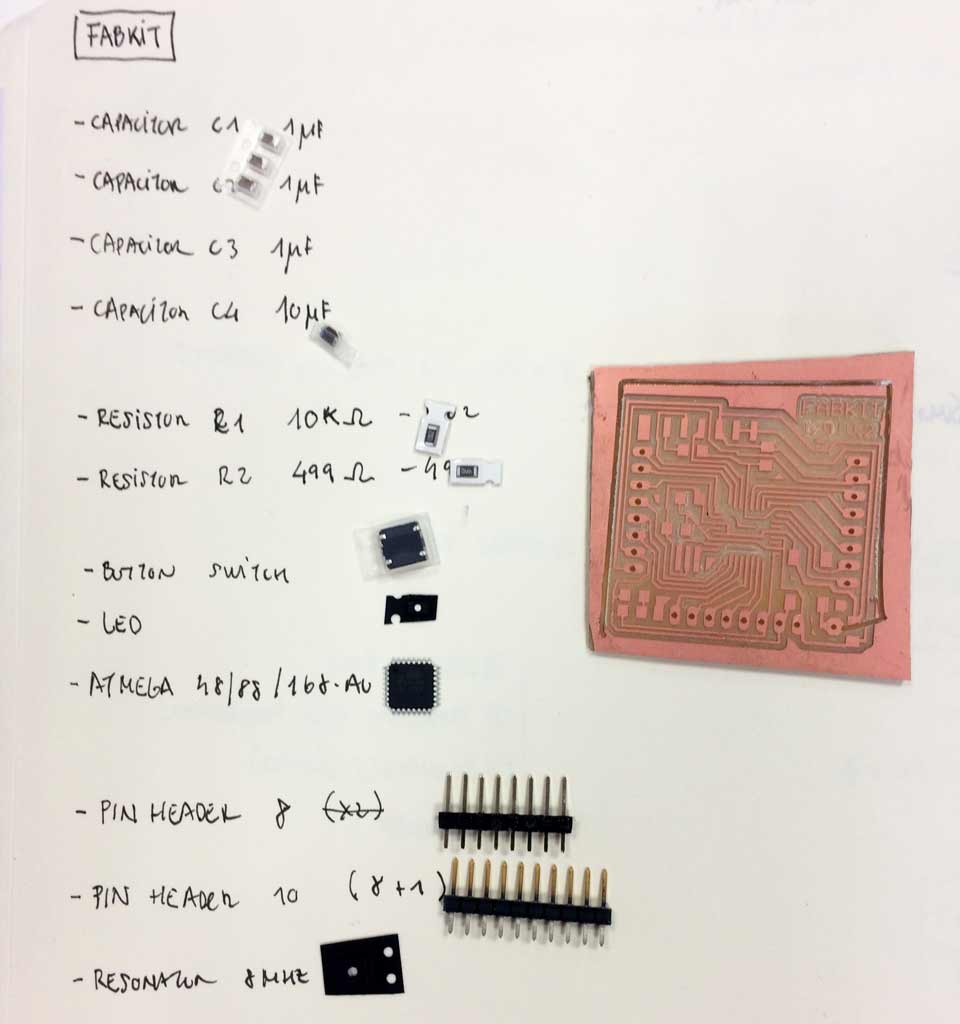 FABKIT
- CAPACITOR C1 1µF
- CAPACITOR C2 1µF
- CAPACITOR C3 1µF
- CAPACITOR C4 10µF
- RESISTOR R1 10KΩ -
- RESISTOR R2 499Ω - 49
FABKIT
- BUTTON SWITCH
- LED
- ATMEGA 48/88/168-AU
- PIN HEADER 8 (x2)
- PIN HEADER 10 (8+1)
- RESONATOR 8MHZ